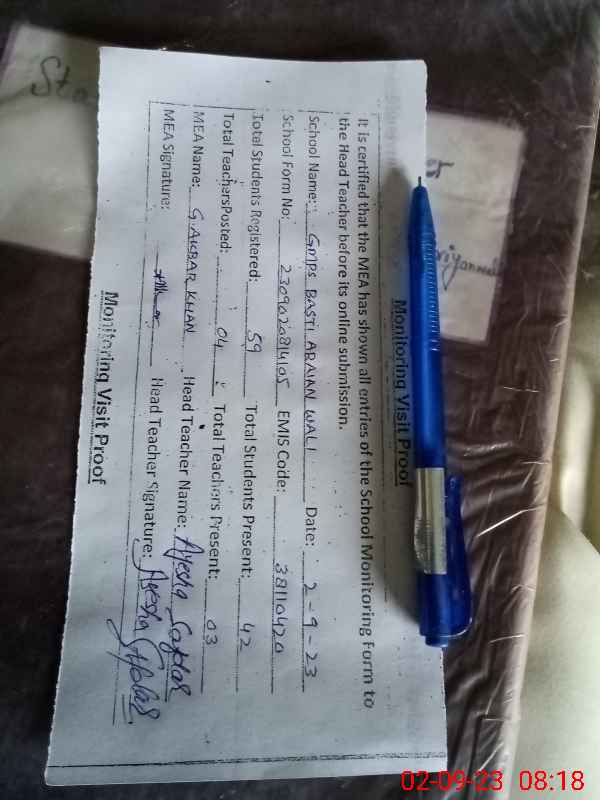 Sta
er
Monitoring Visit Proof
It is certified that the MEA has shown all entries of the School Monitoring Form to
the Head Teacher before its online submission.
School Name: GMPS BASTI ARAIAN WALI Date: 2-9-23
School Form No: 230902081405 EMIS Code: 38110420
Total Students Registered: 59 Total Students Present: 42
Total TeachersPosted: 04 Total Teachers Present: 03
MEA Name: G.AKBAR KHAN Head Teacher Name: Ayesha Safdar
MEA Signature: Head Teacher Signature: Ayesha Safdar
Monitoring Visit Proof
02-09-23 08:18